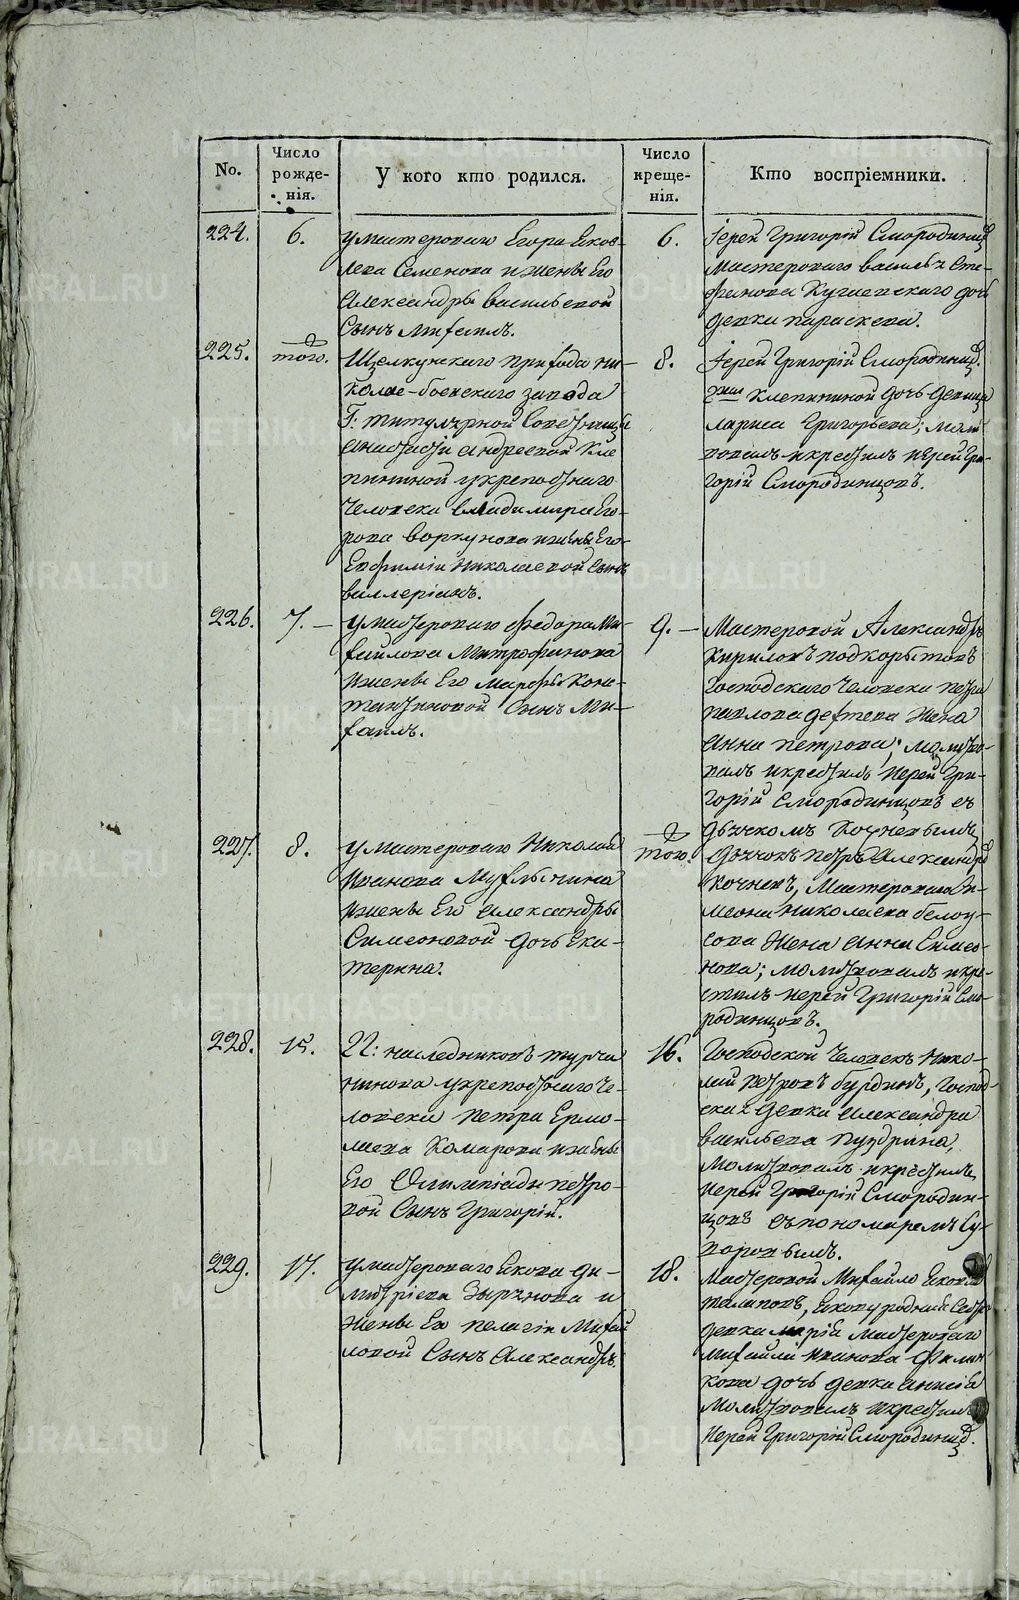 METRIKI.GASO-URAL.RU
No.
Число рожденія.
У кого кто родился.
Число крещенія.
Кто воспріемники.
224.
6.
у мастероваго Егора Яков-
лева Семенова и жены Его
Александры Васильевой
Сынъ Михаилъ.
6.
Іерей Григорій Смородинцовъ
Мастероваго Василья Сте-
фанова дочь
девка Параскева.
225.
того.
Щелкунскаго прихода Ни-
колае-боевскаго завода
Г: титулярной Советницы
Анастасіи Андреевой Кле
пининой у крепостнаго
человека Владимира Его-
рова Воркунова и жены Его
Евфиміи Николаевой Сынъ
Валлеріанъ.
8.
Іерей Григорій Смородинцовъ
Клепининой дочь девица
Лариса Григорьева; Молит-
вовалъ и крестилъ Іерей Гри-
горій Смородинцовъ.
226.
7. –
у мастероваго Федора Ми-
хайлова Митрофанова
и жены Его Марфы Конс-
тантиновой Сынъ Ми-
хаилъ.
9. –
Мастеровой Александръ
Кириловъ Подкорытовъ
Господскаго человека Петра
Павлова Дегтева жена
Анна Петрова; молитво-
валъ и крестилъ Іерей Гри-
горій Смородинцовъ съ
дьячкомъ Кочневымъ.
227.
8.
у мастероваго Николая
Иванова Мухлынина
и жены Его Александры
Симеоновой дочь Ека-
терина.
того.
Дьячокъ Петръ Александровъ
Кочневъ, Мастероваго Си-
меона Николаева Белоу-
сова жена Анна Симео-
нова; молитвовалъ и кре-
стилъ Іерей Григорій Смо-
родинцовъ.
228.
15.
ГГ: наследниковъ Турча
нинова у крепостнаго че-
ловека Петра Ермо-
лаева Комарова и жены
Его Олимпіады Петро-
вой Сынъ Григорій.
16.
Господской человекъ Нико-
лай Петровъ Бурдинъ, Господ-
ская девка Александра
Васильева Пуздрина,
Молитвовалъ и крестилъ
Іерей Григорій Смородин-
цовъ съ пономаремъ Су-
воровымъ.
229.
17.
у мастероваго Якова Ди-
митріева Зырянова и
жены Его Пелагіи Михай
ловой Сынъ Александръ.
18.
Мастеровой Михайло Яковлевъ
девка Марія Мастероваго
Михайла Иванова Филип-
кова дочь девка Анисія
Молитвовалъ и крестилъ
Іерей Григорій Смородинцовъ.